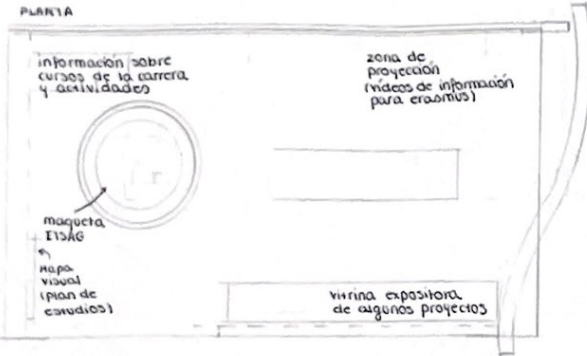 PLANTA
información sobre
cursos de la carrera
y actividades
zona de
proyección
(vídeos de información
para erasmus)
maqueta
ETSAG
mapa
visual
(plan de
estudios)
vitrina expositora
de algunos proyectos